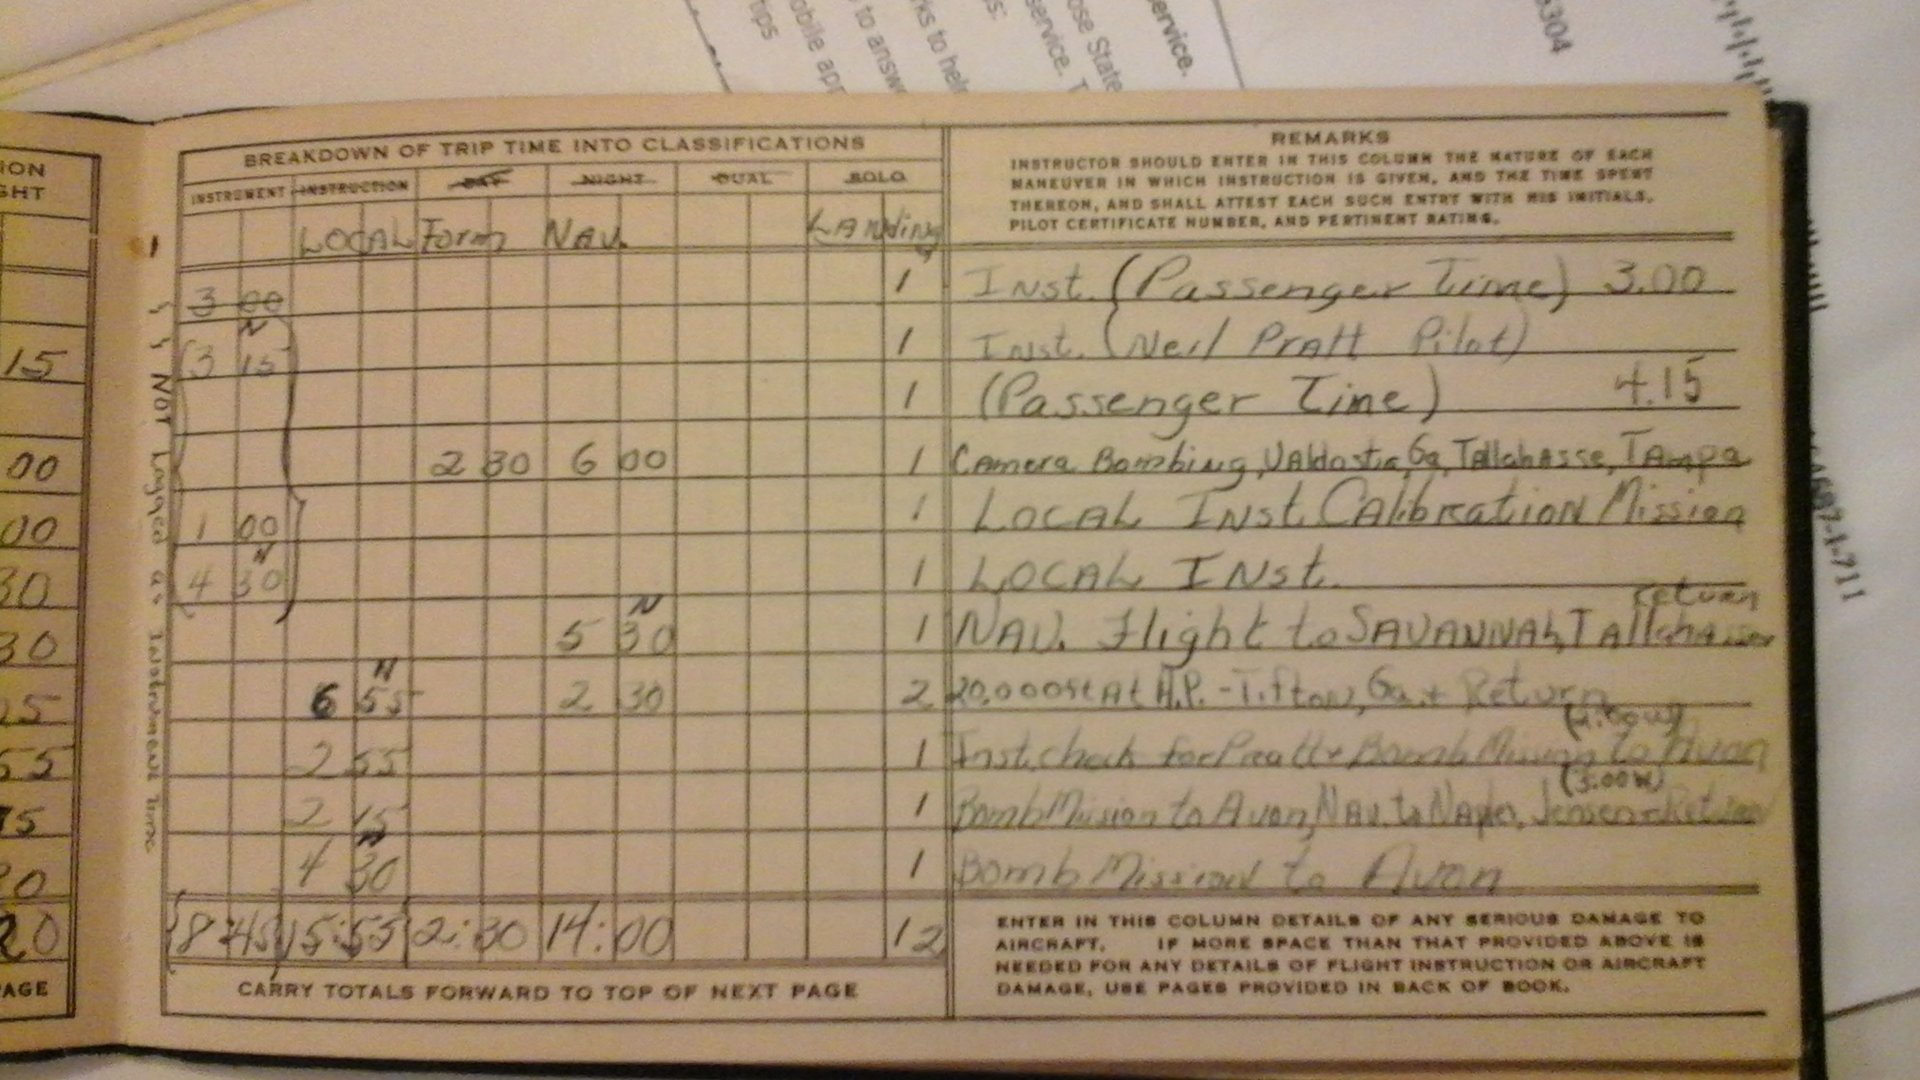 tips
obile app
to answ
ks to help
s:
service. T
ose State
ervice.
6304
ION
GHT
BREAKDOWN OF TRIP TIME INTO CLASSIFICATIONS
INSTRUMENT INSTRUCTION DAY NIGHT DUAL SOLO
LOCAL Form NAV. LANding
REMARKS
INSTRUCTOR SHOULD ENTER IN THIS COLUMN THE NATURE OF EACH
MANEUVER IN WHICH INSTRUCTION IS GIVEN, AND THE TIME SPENT
THEREON, AND SHALL ATTEST EACH SUCH ENTRY WITH HIS INITIALS,
PILOT CERTIFICATE NUMBER, AND PERTINENT RATING.
3 00 1 Inst. (Passenger Time) 3.00
15 3 15 N 1 Inst. (Neil Pratt Pilot)
1 (Passenger Time) 4.15
00 2 30 6 00 1 Camera Bombing, Valdosta, Ga, Tallahasse, Tampa
00 1 00 1 LOCAL Inst. CALibration Mission
30 4 30 N 1 LOCAL INst.
30 5 30 N 1 NAV. Flight to SAVANNAh, Tallahassee return
6 55 N 2 30 2 20,000 ft At A.P. - Tifton, Ga. + Return
55 2 55 1 Inst. check for Pratt + Bomb Mission to Avon
2 15 1 Bomb Mission to Avon, NAV. to Jensen + Return (3:00 W)
4 30 N 1 Bomb Mission to Avon
Not Logged as Instrument Time
20 8:45 15:55 2:30 14:00 12
PAGE
CARRY TOTALS FORWARD TO TOP OF NEXT PAGE
ENTER IN THIS COLUMN DETAILS OF ANY SERIOUS DAMAGE TO
AIRCRAFT. IF MORE SPACE THAN THAT PROVIDED ABOVE IS
NEEDED FOR ANY DETAILS OF FLIGHT INSTRUCTION OR AIRCRAFT
DAMAGE, USE PAGES PROVIDED IN BACK OF BOOK.